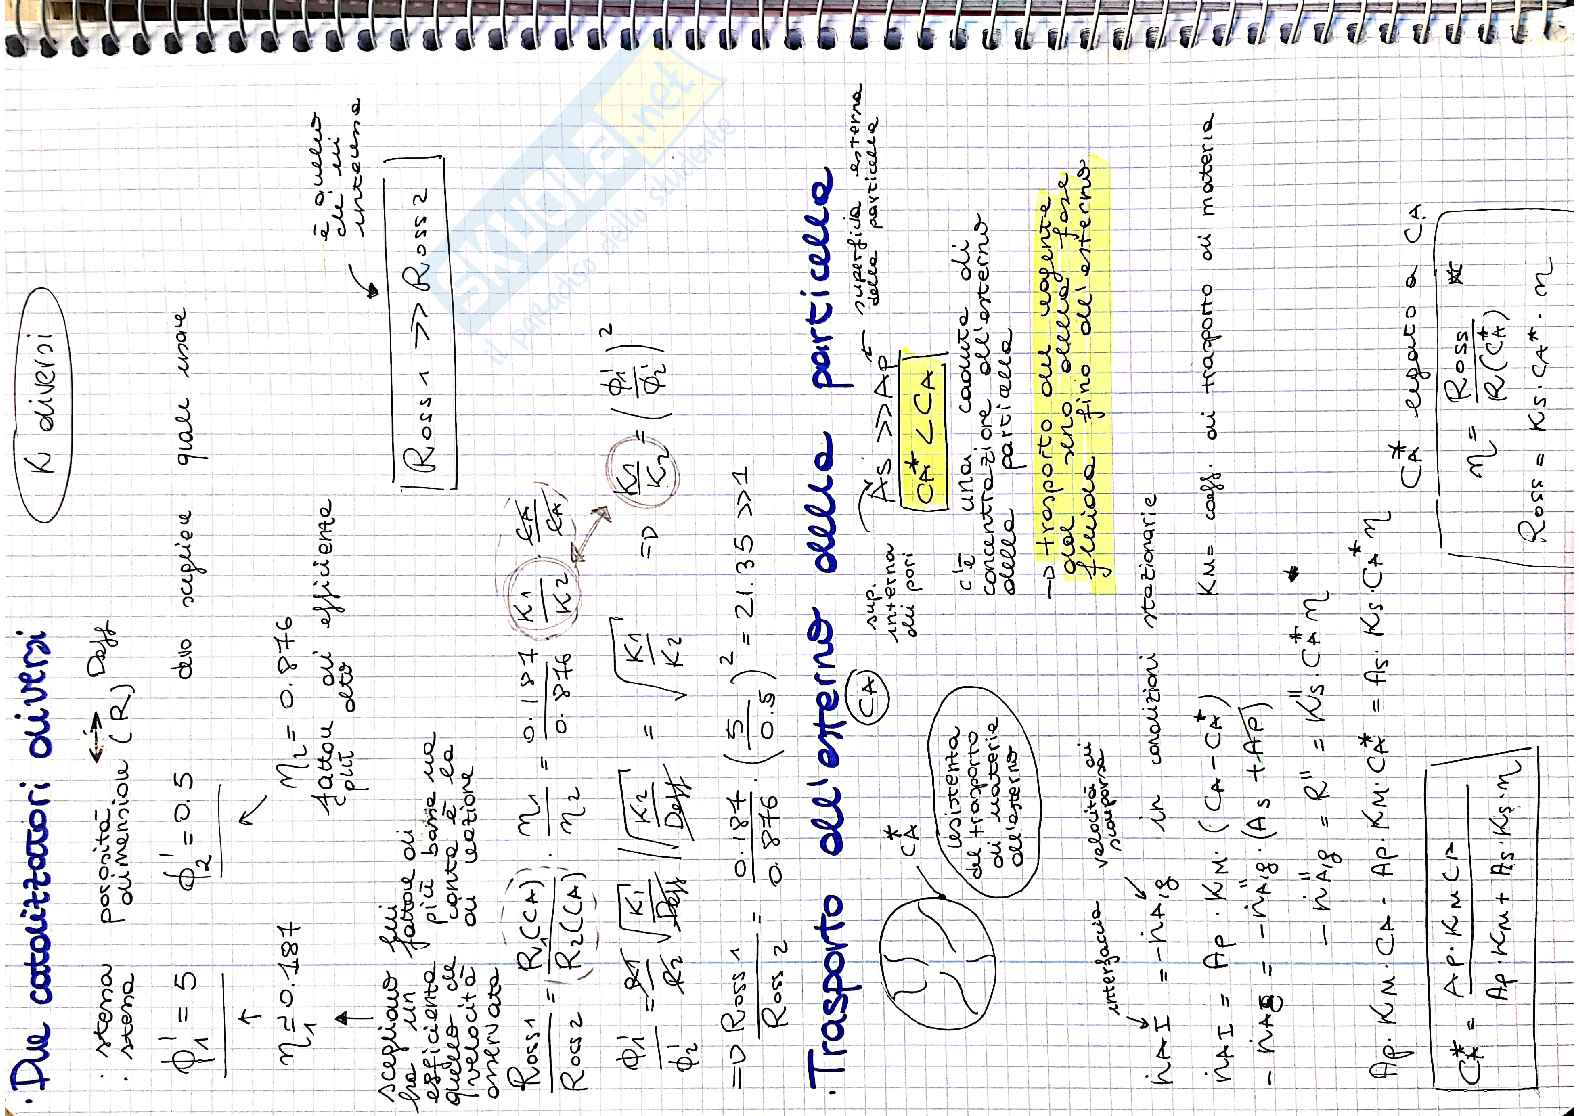 · Due catalizzatori diversi
K diversi
· stessa porosità ↔ Deff
· stessa dimensione (R)
ϕ'₁ = 5
ϕ'₂ = 0.5
devo scegliere quale usare
η₁ = 0.187
η₂ = 0.876
fattore di efficienza
più alto
scegliamo
ha un fattore di
efficienza più basso ma
quello che conta è la
velocità di reazione
osservata
è quello
che mi
interessa
Ross 1 >> Ross 2
Ross 1 / Ross 2 = R₁(CA) / R₂(CA) · η₁ / η₂ = 0.187 / 0.876 · K1 / K2 · CA / CA
ϕ'₁ / ϕ'₂ = R1 / R2 √(K1 / Deff) / √(K2 / Deff) = √(K1 / K2) => K1 / K2 = (ϕ'₁ / ϕ'₂)²
=> Ross 1 / Ross 2 = 0.187 / 0.876 · (5 / 0.5)² = 21.35 >> 1
· Trasporto all'esterno della particella
CA
CA*
resistenza
del trasporto
di materia
all'esterno
sup.
interna
dei pori
As >> Ap
superficie esterna
della particella
CA* < CA
c'è una caduta di
concentrazione all'esterno
della particella
-> trasporto del reagente
dal seno della fase
fluida fino all'esterno
interfaccia
velocità di
scomparsa
ṅAI = -ṅAig in condizioni stazionarie
ṅAI = Ap · KM · (CA - CA*)
KM = coeff. di trasporto di materia
- ṅAig = -ṅ"Aig · (As + Ap)
- ṅ"Aig = R" = K"s · CA* η
Ap · KM · CA - Ap · KM CA* = As · Ks · CA* η
CA* = Ap · KM CA / Ap · KM + As · Ks · η
CA* legato a CA
η = Ross / R(CA*)
Ross = Ks · CA* · η
SKUOLA.net
il paradiso dello studente